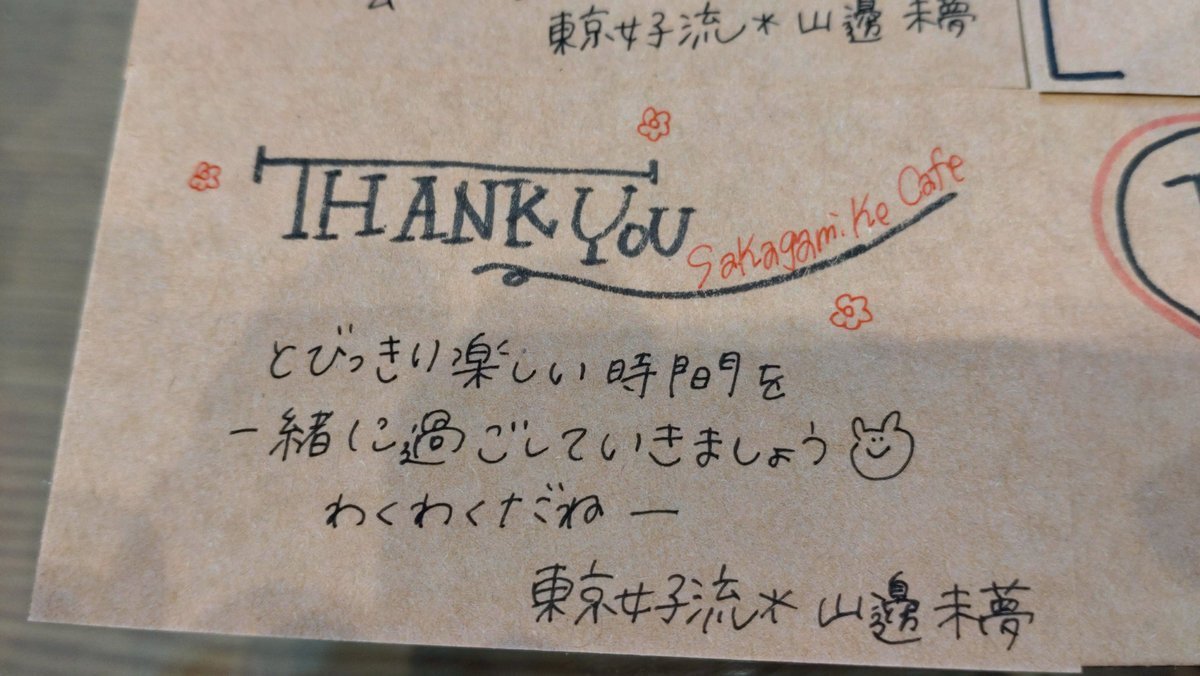 東京女子流*山邊 未夢
THANK YOU
Sakagami.Ke Cafe
とびっきり楽しい時間を
一緒に過ごしていきましょう
わくわくだねー
東京女子流*山邊 未夢